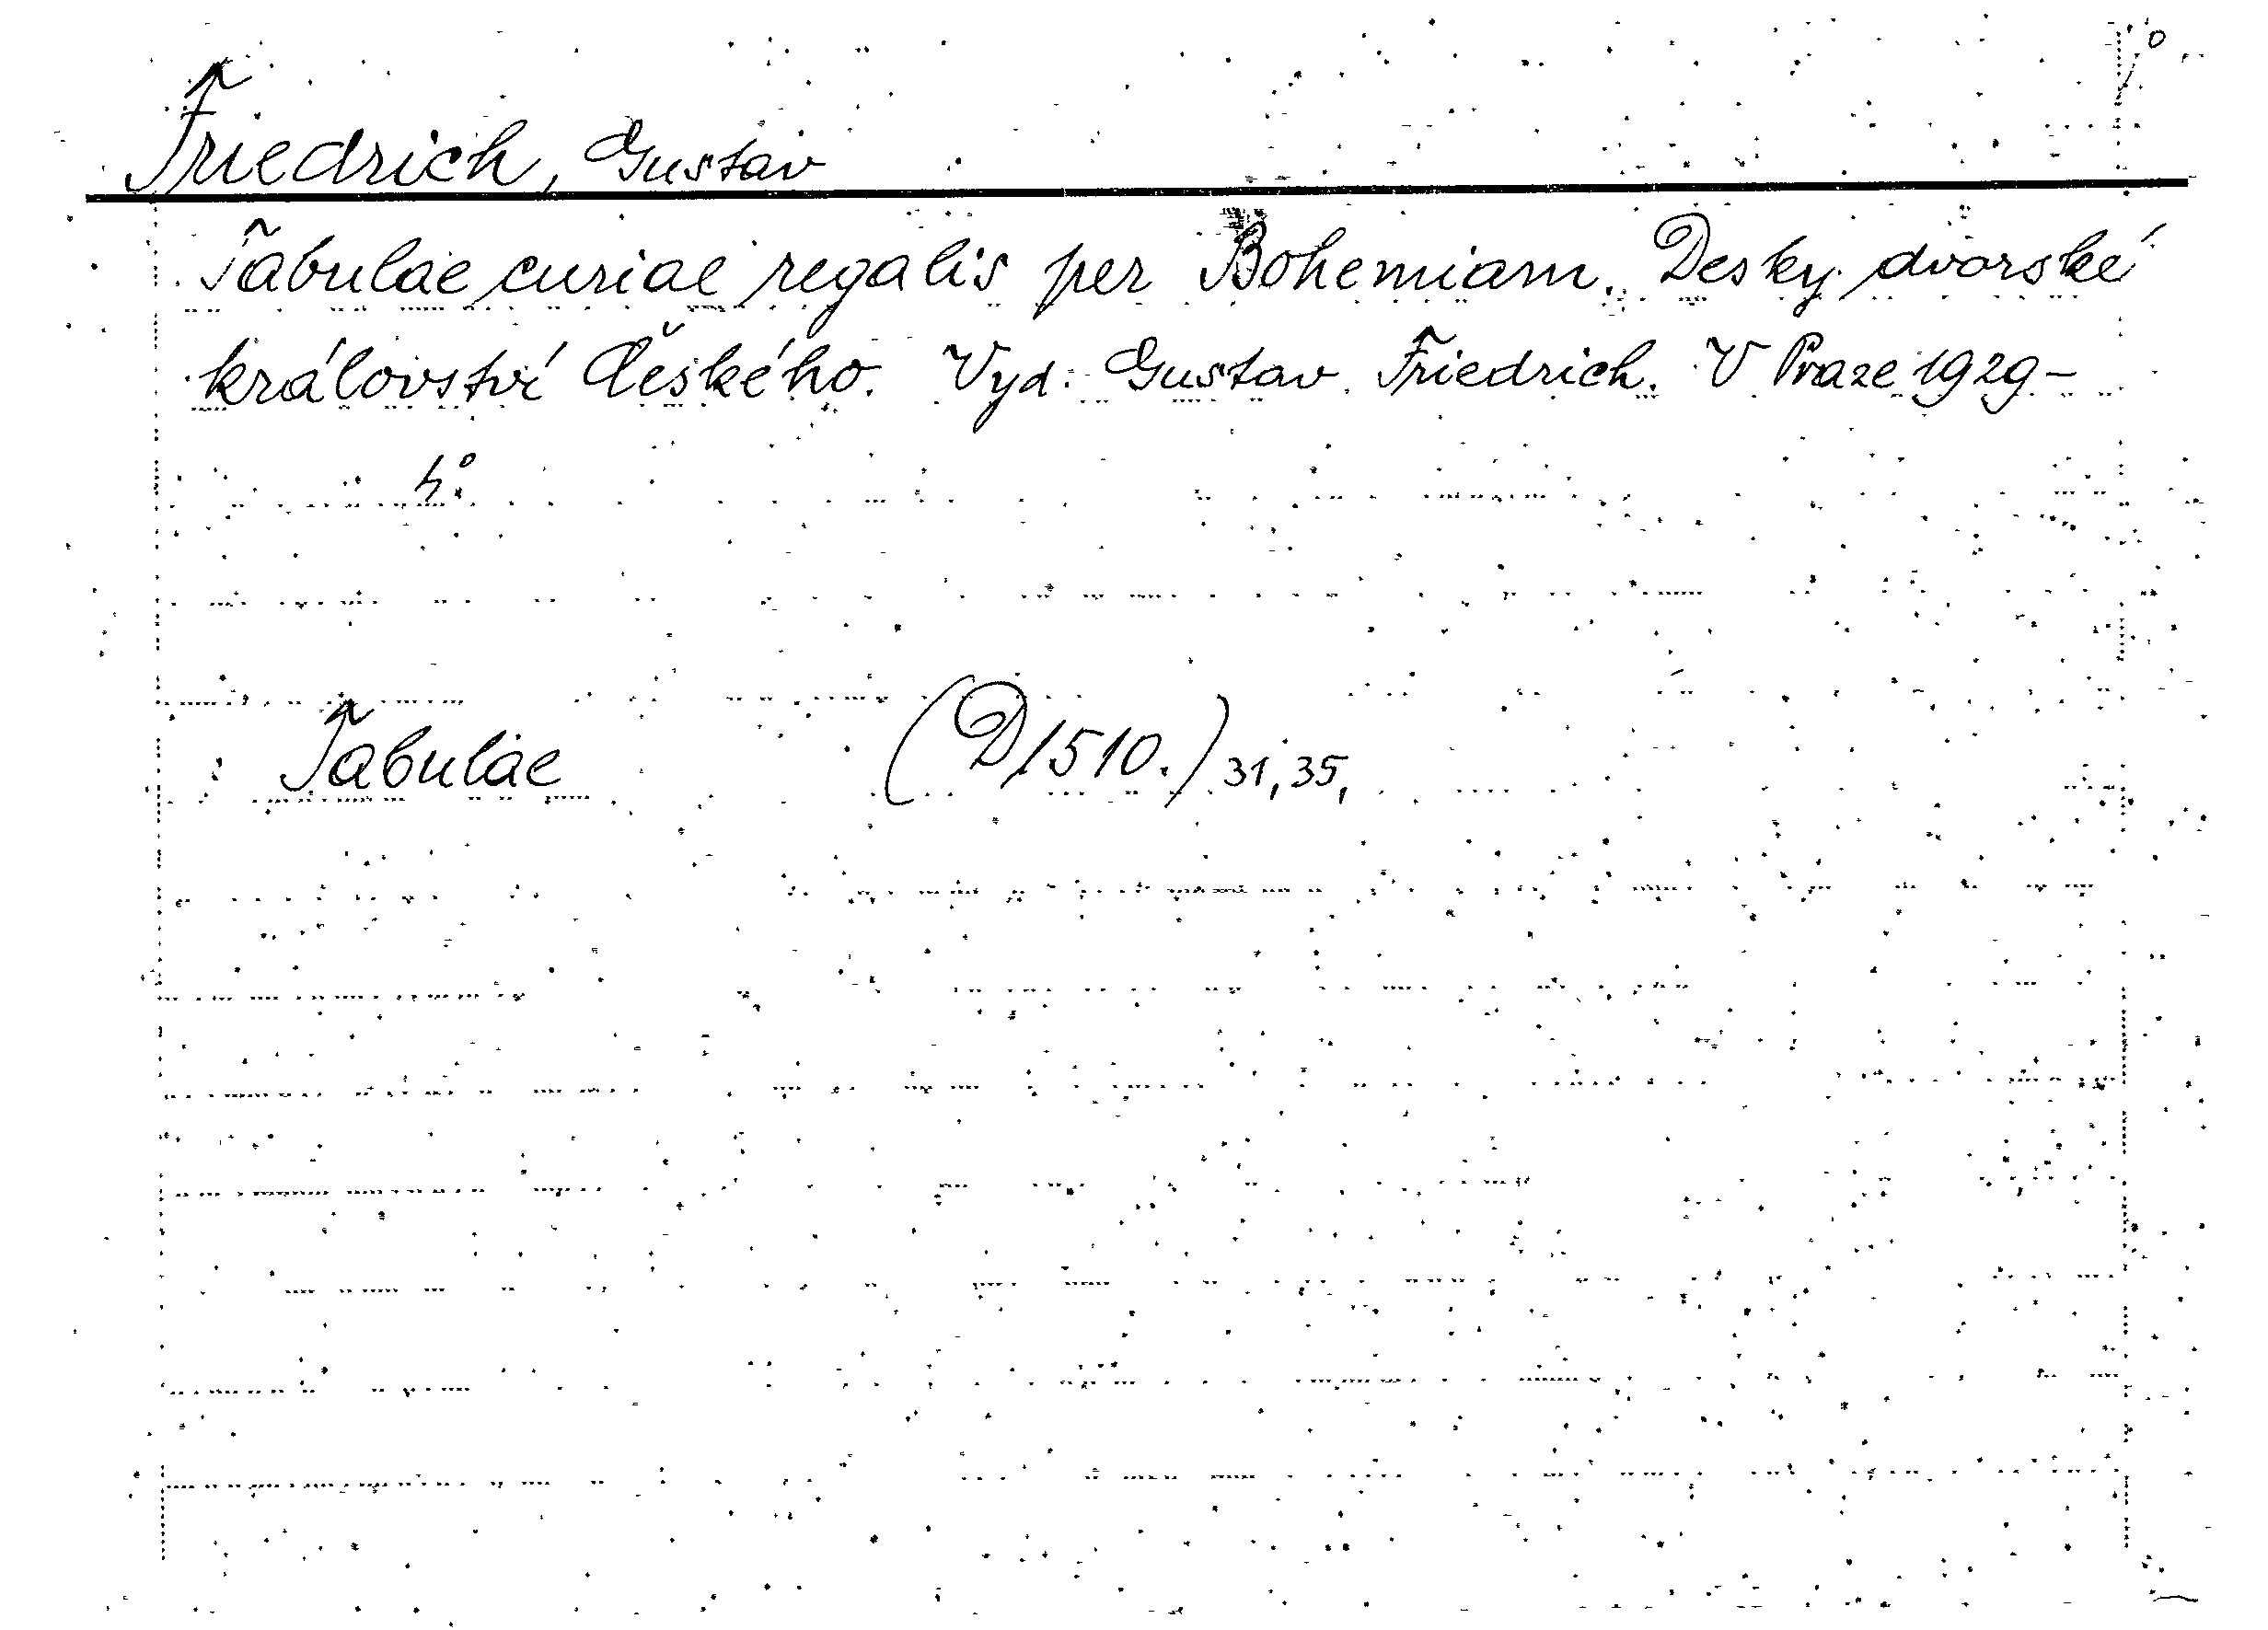 Friedrich, Gustav
Tabulae curiae regalis per Bohemiam. Desky dvorské
království Českého. Vyd. Gustav Friedrich. V Praze 1929-
4°.
Tabulae (D1510.) 31, 35,